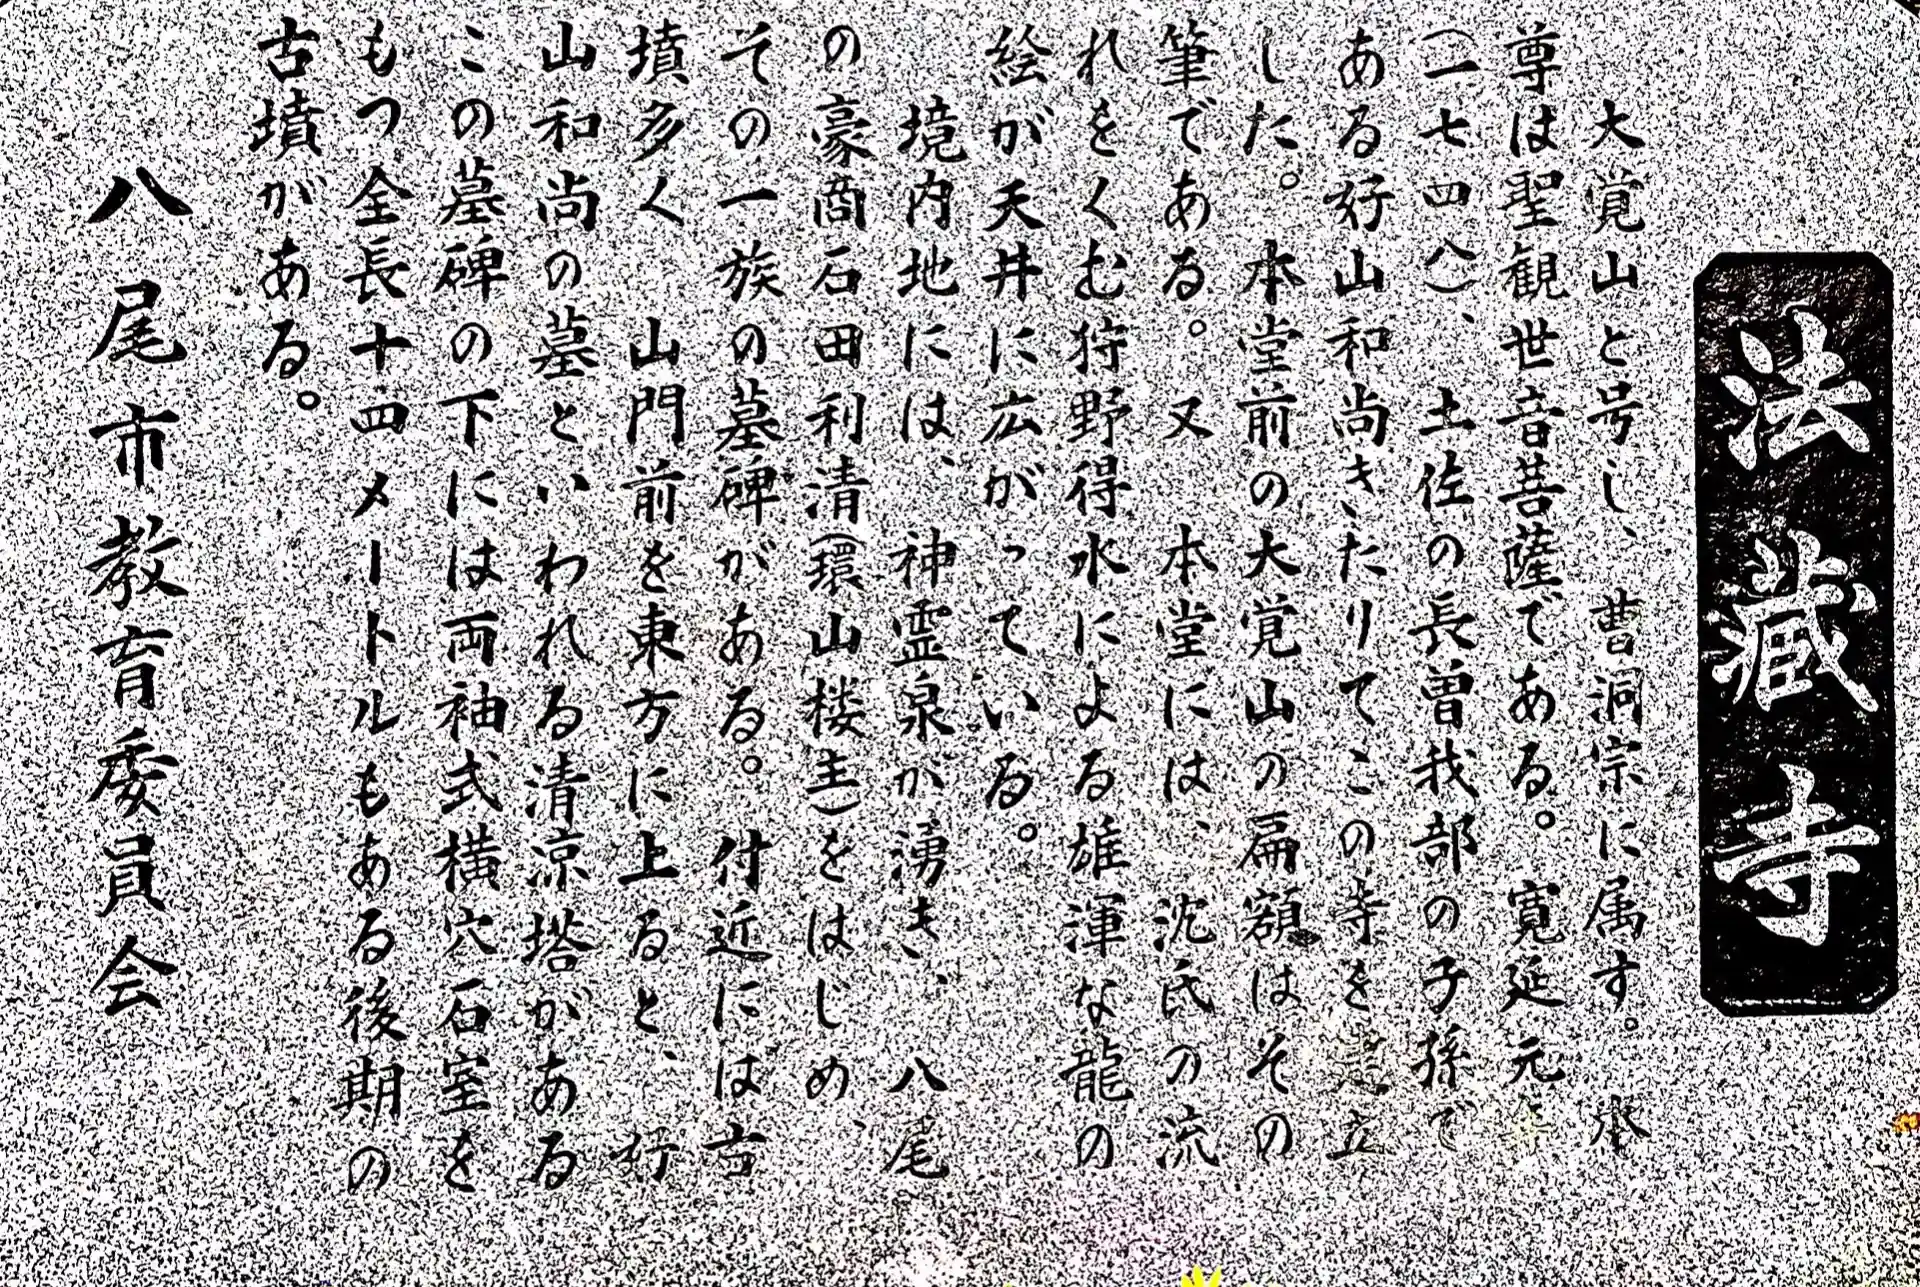 法藏寺
大覚山と号し、曹洞宗に属す。本
尊は聖観世音菩薩である。寛延元年
(一七四八)、土佐の長曽我部の子孫で
ある好山和尚きたりてこの寺を建立
した。本堂前の大覚山の扁額はその
筆である。又、本堂には、沈氏の流
れをくむ狩野得水による雄渾な龍の
絵が天井に広がっている。
境内地には、神霊泉が湧き、八尾
の豪商石田利清(環山楼主)をはじめ、
その一族の墓碑がある。付近には古
墳多く、山門前を東方に上ると、好
山和尚の墓といわれる清涼塔がある
この墓碑の下には両袖式横穴石室を
もつ全長十四メートルもある後期の
古墳がある。
八尾市教育委員会